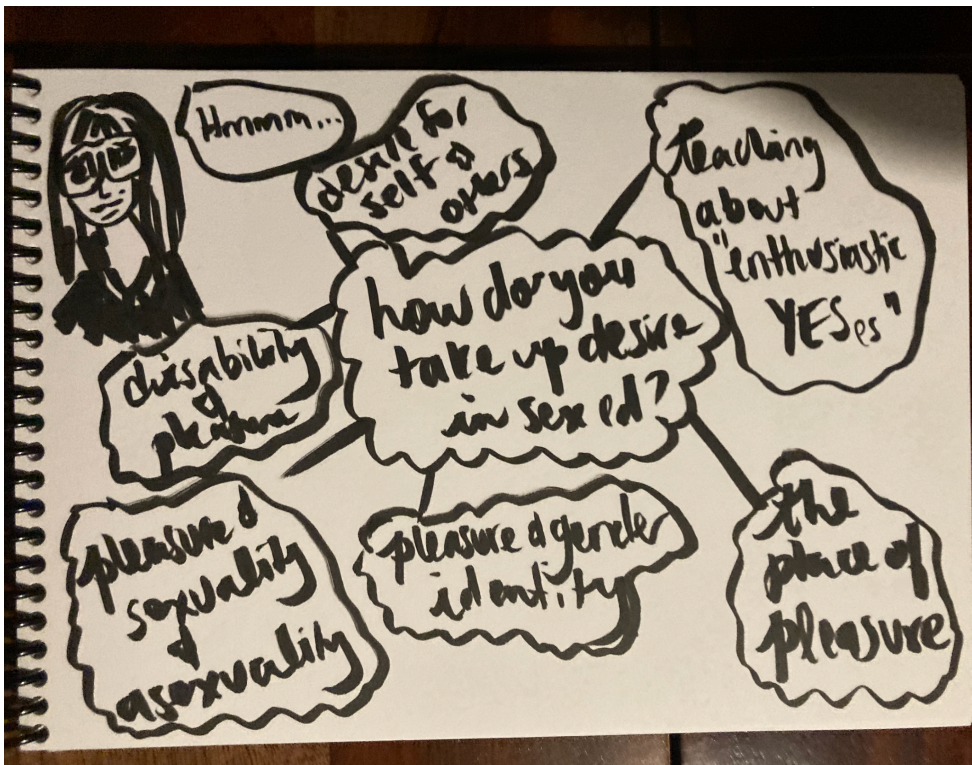 Hmmm...
desire for
self &
others
teaching
about
"enthusiastic
YESes"
how do you
take up desire
in sex ed?
disability
&
pleasure
pleasure &
sexuality
&
asexuality
pleasure & gender
identity
the
place of
pleasure